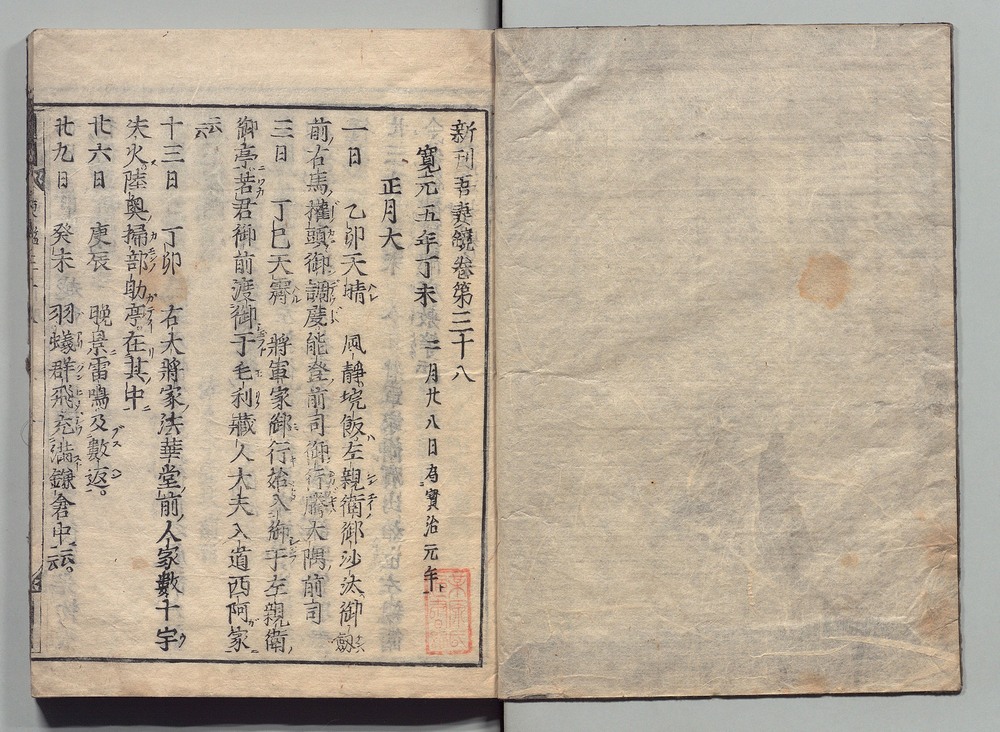 新刊吾妻鏡卷第三十八
寛元五年丁未 二月廿八日為寳治元年
正月大
一日 乙卯天晴 風靜垸飯左親衛御沙汰御劔
前右馬權頭御調度能登前司御行騰大隅前司
三日 丁巳天霽 將軍家御行始入御于左親衛
御亭若君御前渡御于毛利藏人大夫入道西阿家
云云
十三日 丁卯 右大將家法華堂前人家數十宇
失火陸奥掃部助亭在其中
廿六日 庚辰 晩景雷鳴及數返
廿九日 癸未 羽蟻群飛充滿鎌倉中云云